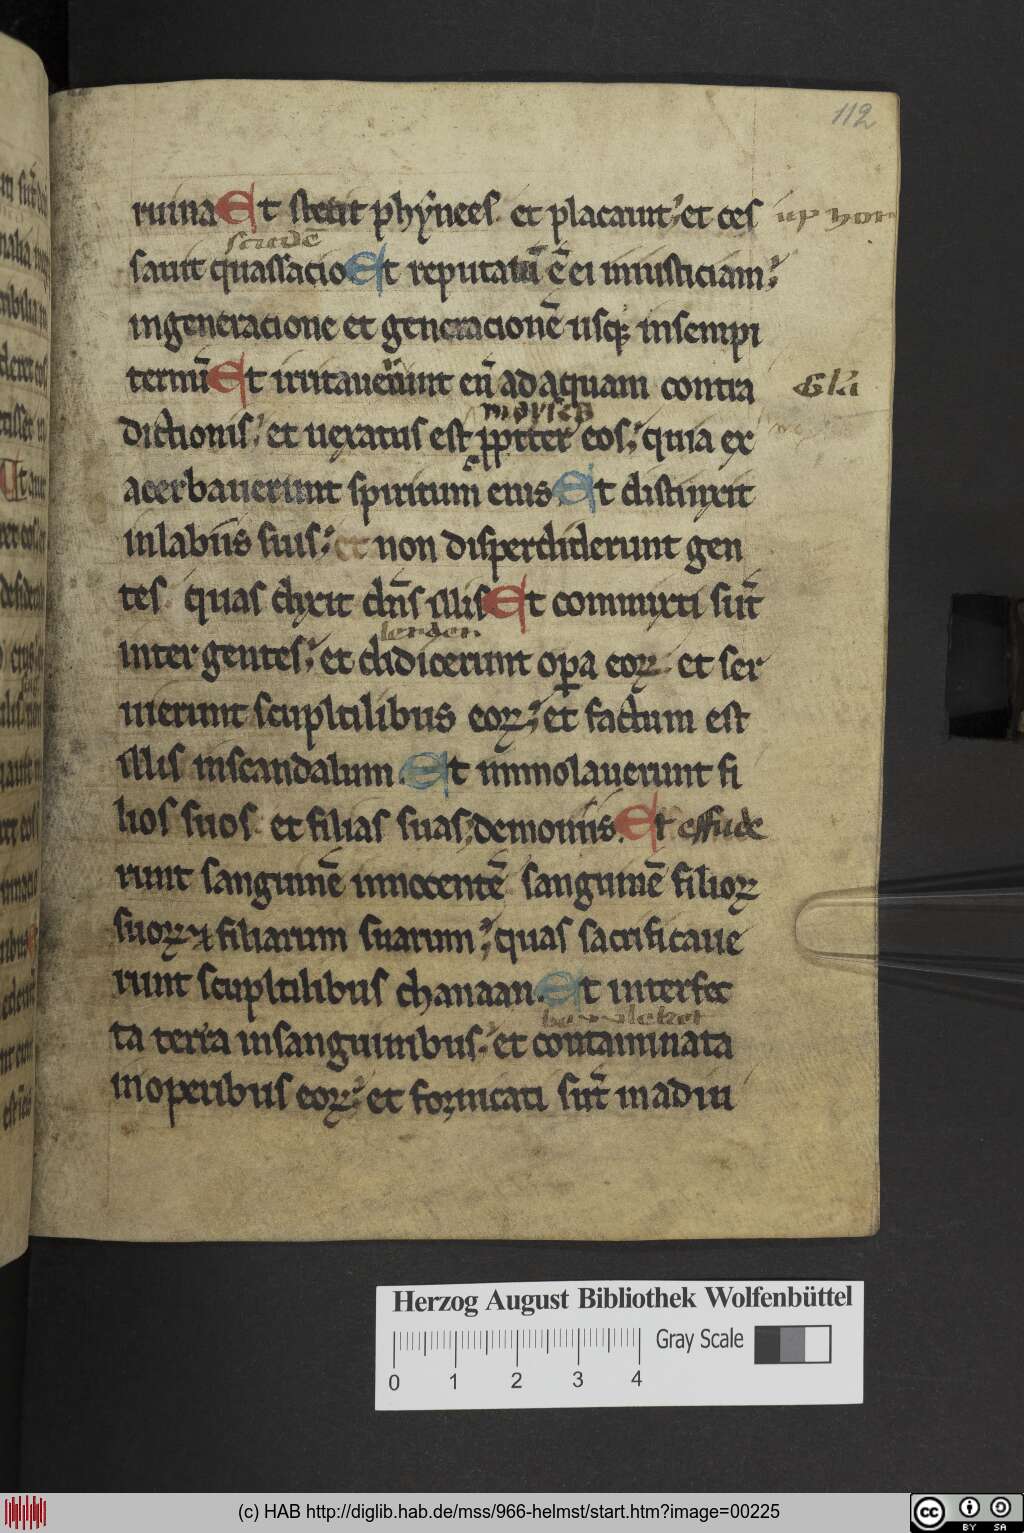 112
ruina Et stetit phynees et placauit et ces
sauit quassacio Et reputatū ē ei iniusticiam
ingeneracione et generacionē usq; insempi
ternū Et irritauerunt eū ad aquam contra
dictionis et uexatus est ppter eos quia ex
moyses
acerbauerunt spiritum eius Et distinxit
inlabiis suis et non disperdiderunt gen
tes quas dixit dn̄s illis Et commixti sūt
inter gentes et didicerunt opa eoꝝ et ser
uierunt scupltilibus eoꝝ et factum est
illis inscandalum Et immolauerunt fi
lios suos et filias suas demoniis Et effude
runt sanguinē innocentē sanguinē filioꝝ
suoꝝ ⁊ filiarum suarum quas sacrificaue
runt scupltilibus chanaan Et interfec
ta terra insanguinibus et contaminata
inoperibus eoꝝ et fornicati sūt inadiu
Herzog August Bibliothek Wolfenbüttel
Gray Scale
0 1 2 3 4
(c) HAB http://diglib.hab.de/mss/966-helmst/start.htm?image=00225
cc BY SA